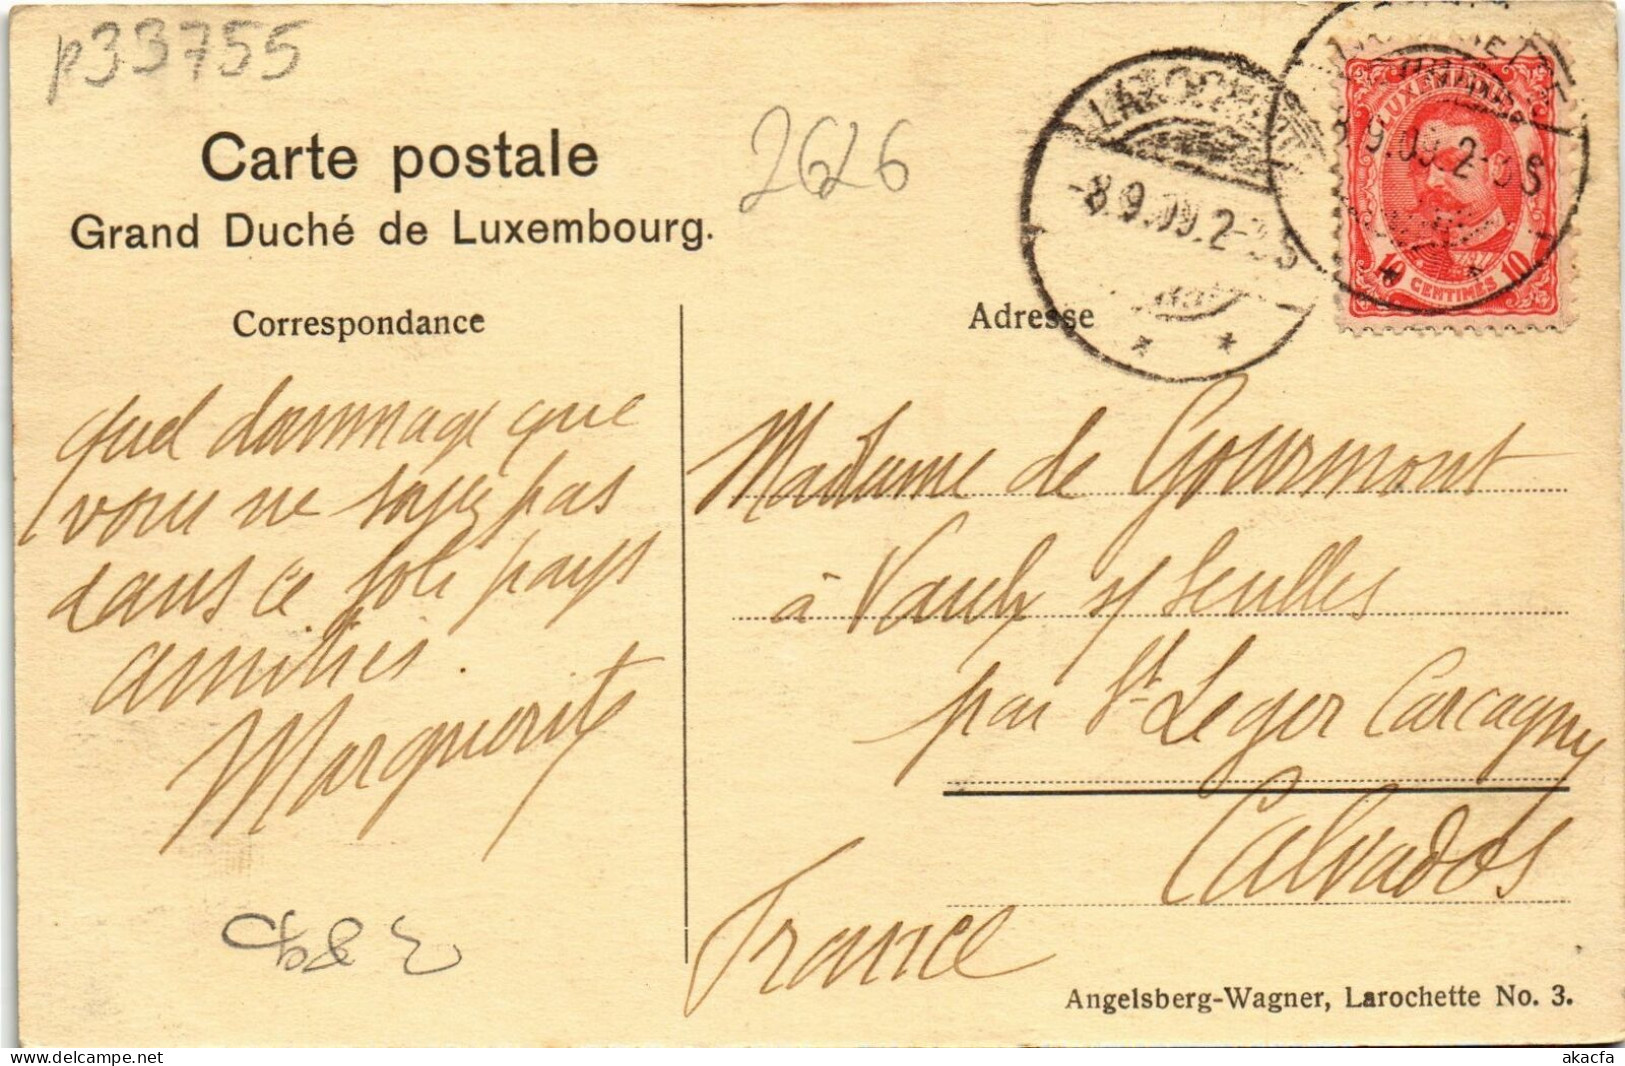 p33755
Carte postale
Grand Duché de Luxembourg.
2626
LAROCHETTE
-8.9.09.2-3S
8.9.09.2-3S
LUXEMBOURG
10 CENTIMES 10
Correspondance
Adresse
quel dommage que
vous ne soyez pas
dans ce joli pays
amitiés.
Marguerite
Madame de Gourmont
à Vaulx s/ Seulles
par St Leger Carcagny
Calvados
France
Angelsberg-Wagner, Larochette No. 3.
delcampe.net
akacfa